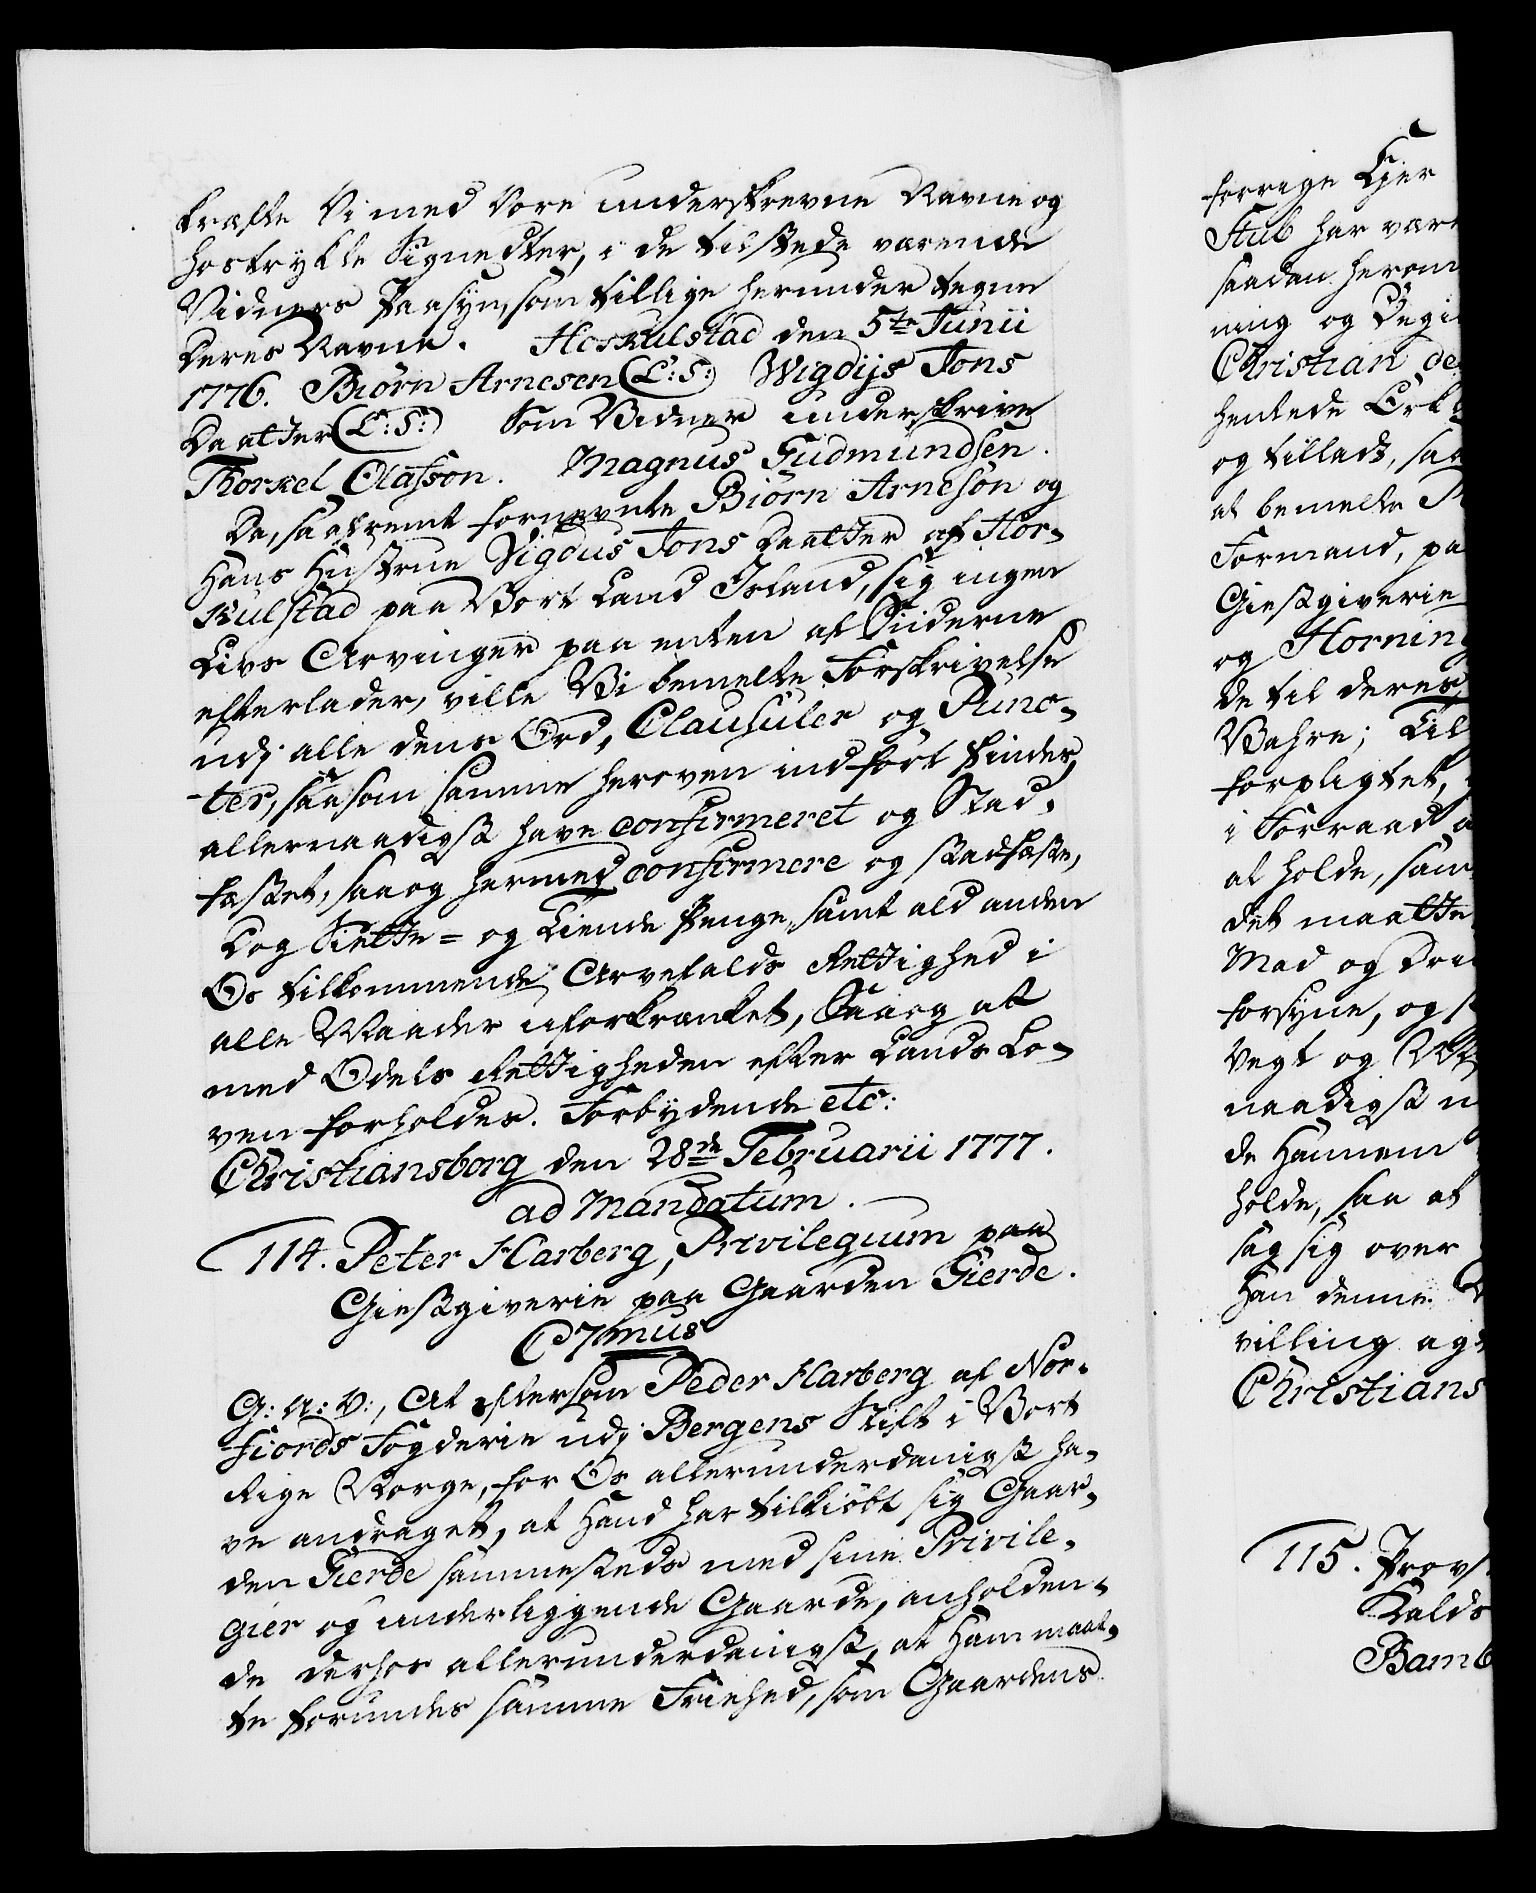 kræfte Vi med Vore underskrevne Navne og
hostrykte Signedter, i de tilstede værende
Vidners Paasyn, som tillige herunder tegne
Deres Navne. Hoskulstad den 5te Junii
1776. Biörn Arnesen (L:S:) Wigdijs Jons
Daatter (L:S:) Som Vidner underskrive
Thorkel Olafson. Magnus Gudmundsen.
Da, saafremt fornevnte Biörn Arneson og
Hans Hustrue Vigdus Jons Daatter af Hos-
kulstad paa Vort Land Island, sig ingen
Livs Arvinger paa enten af Siiderne
efterlader, ville Vi bemelte Forskrivelse
udj alle dens Ord, Clausuler og Punc-
ter, saasom samme heroven indfört findes,
allernaadigst have confirmeret og Stad-
fæstet, saa og hermed confirmere og stadfæste,
Dog Siette= og Tiende Penge, samt ald anden
Os tilkommende Arvefalds Rettighed i
alle Maader uforkrænket, Saa og at
med Odels Rettigheden efter Lands Lo-
ven forholdes. Forbydende etc:
Christiansborg den 28de Februarii 1777.
ad Mandatum.
114. Peter Harberg, Privilegium paa
Giestgiverie paa Gaarden Gierde.
C 7mus
G: A: V:, At eftersom Peder Harberg af Nor-
fiords Fogderie udj Bergens Stift i Vort
Rige Norge, for Os allerunderdanigst ha-
ve andraget, at Hand har tilkiöbt sig Gaar-
den Gierde sammesteds med sine Privile-
gier og underliggende Gaarde, anholden-
de derhos allerunderdanigst, at Ham maat-
te forundes samme Friehed, som Gaardens
forrige Eier
Stub har vær
saadan herom
ning og Begi
Christian de
hentede Erk
og tilladt, saa
at bemelte
Formand, pa
Giestgiverie
og Horning
de til deres
Vahre; Lil
forpligtet,
i Forraad
at holde, sam
det maatte
Mad og Dri
forsyne, og
Vegt og
naadigst
de Hannem
holde, saa at
sag sig over
Han denne
villing ag
Christians
115. Provst
Kalds
Bamb